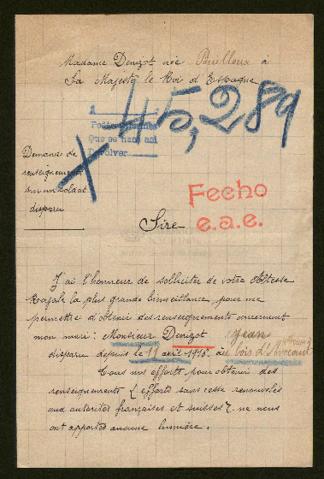 Madame Denizot née Perilloux à
Sa Majesté le Roi d'Espagne
45,289
X
Demande de
renseignements
sur un soldat
disparu
Fecho
e.a.e.
Sire
J'ai l'honneur de solliciter de votre Altesse
Royale la plus grande bienveillance pour me
permettre d'obtenir des renseignements concernant
mon mari : Monsieur Denizot Jean
disparu depuis le 11 avril 1918 au bois d'
Tous nos efforts pour obtenir des
renseignements (efforts sans cesse renouvelés
aux autorités françaises et suisses) ne nous
ont apporté aucune lumière.